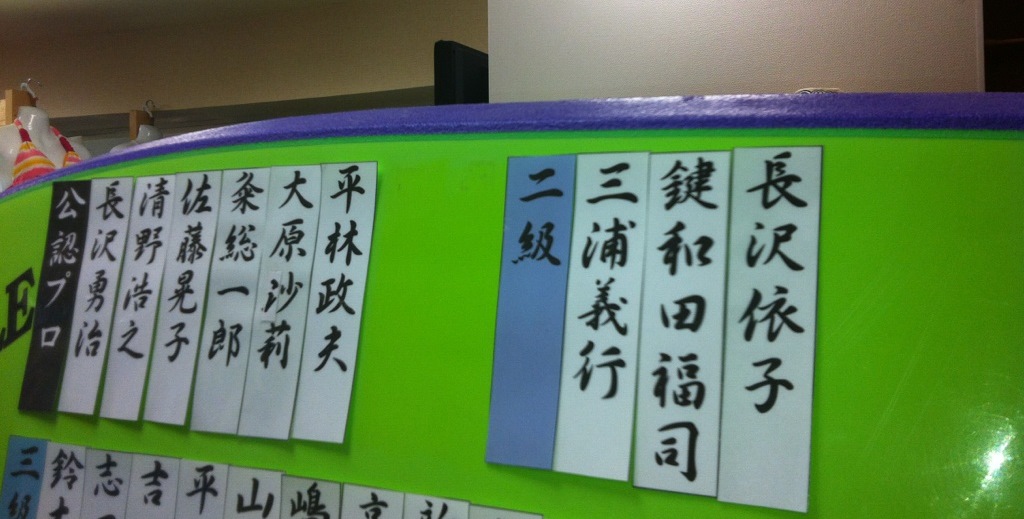 公認プロ
長沢勇治
清野浩之
佐藤晃子
粂総一郎
大原沙莉
平林政夫
二級
三浦義行
鍵和田福司
長沢依子
三級
鈴
志
吉
平
山
嶋
E